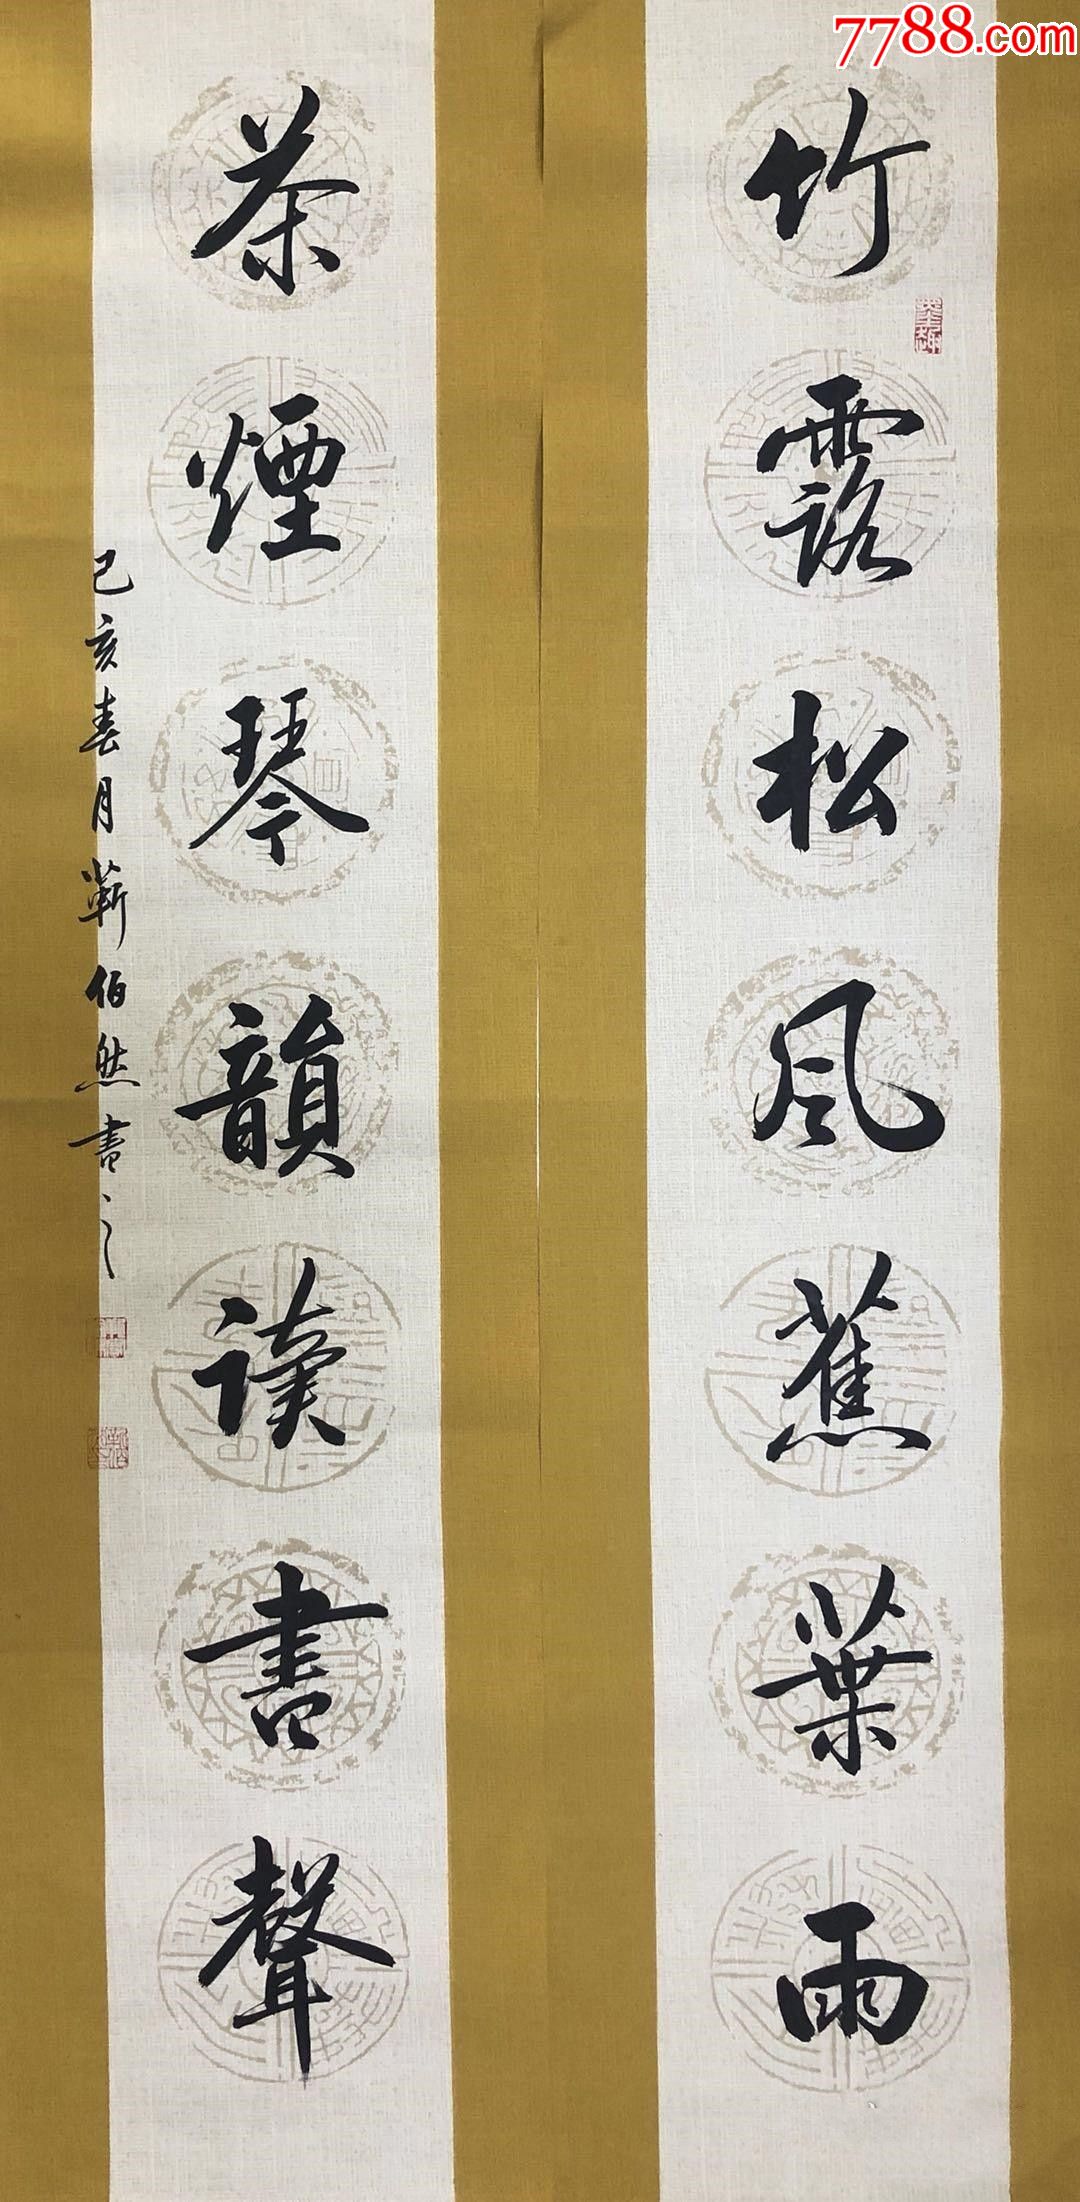 7788.com
竹露松风蕉葉雨
茶煙琴韻读書聲
己亥春月蕲伯然書之